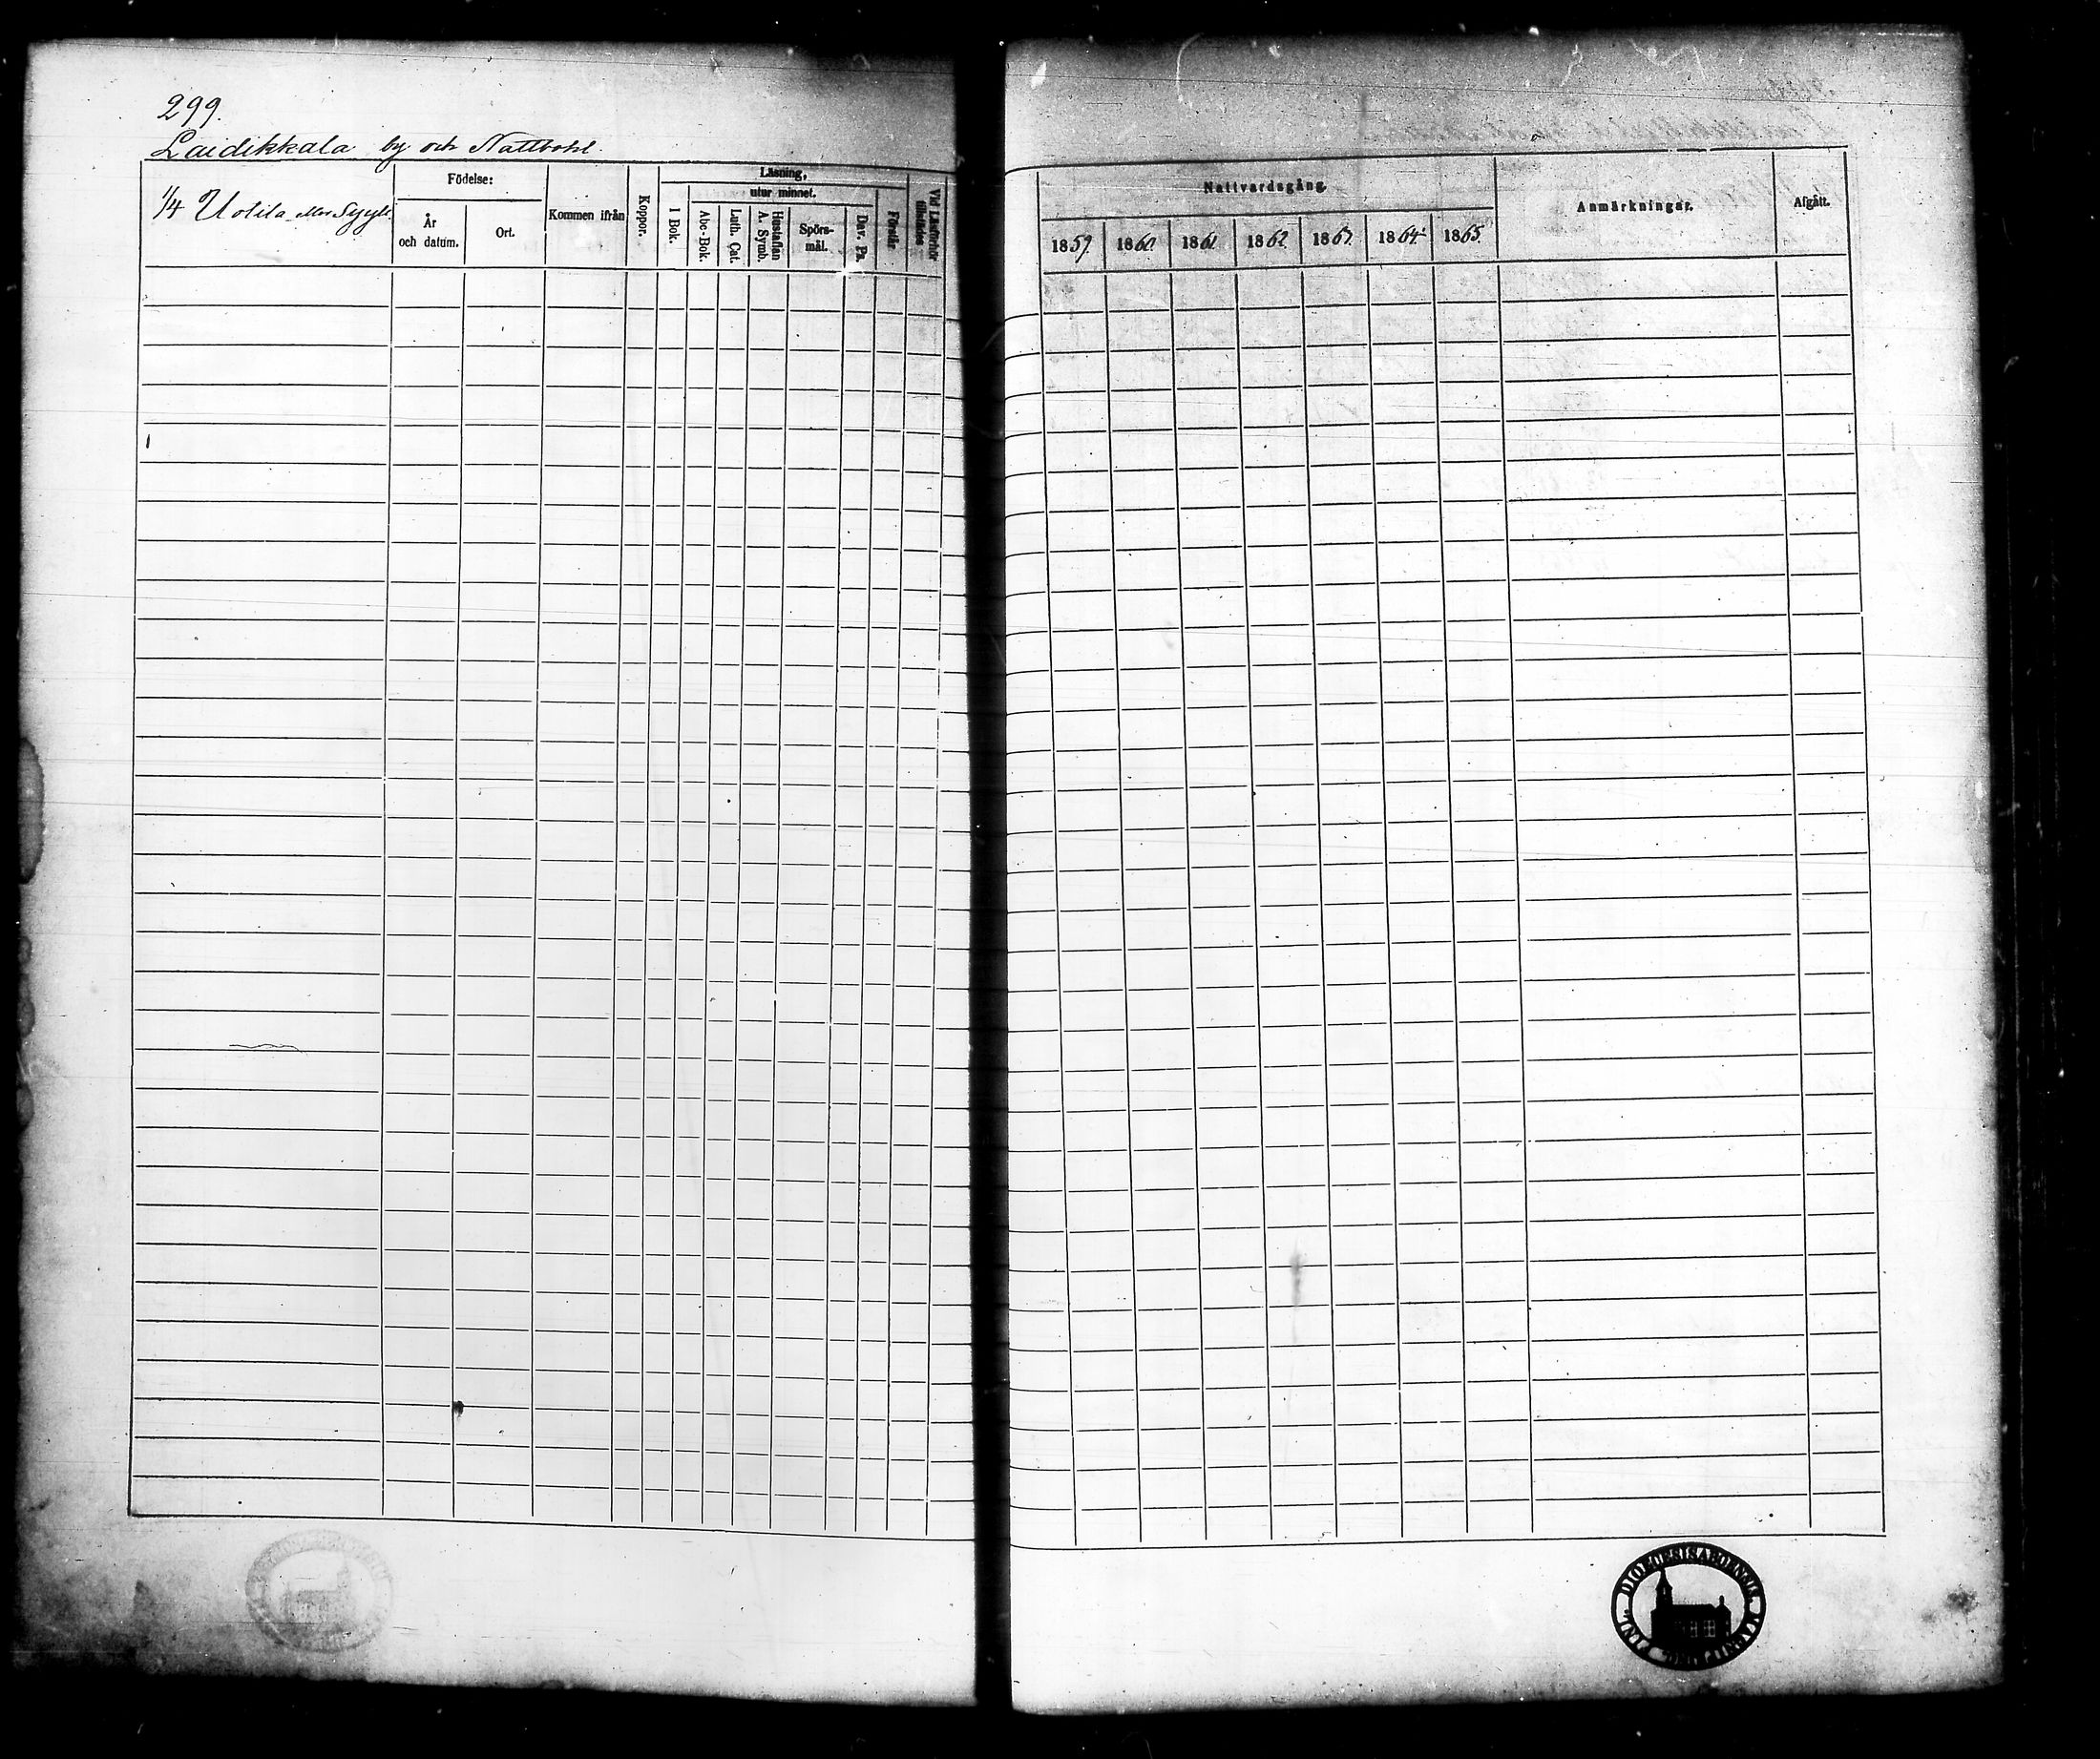 299.
Laidikkala by och Nattbohl.
1/4 Uotila
Födelse:
År och datum.
Ort.
Kommen ifrån
Koppor.
Läsning,
utur minnet.
I Bok.
Abc-Bok.
Luth. Cat.
Hustaflan A. Symb.
Spörs-mål.
Dav. Ps.
Förstår
Vid Läsförhör tillstädes
Nattvardsgång.
1859. 1860. 1861. 1862. 1863. 1864. 1865.
Anmärkningar.
Afgått.